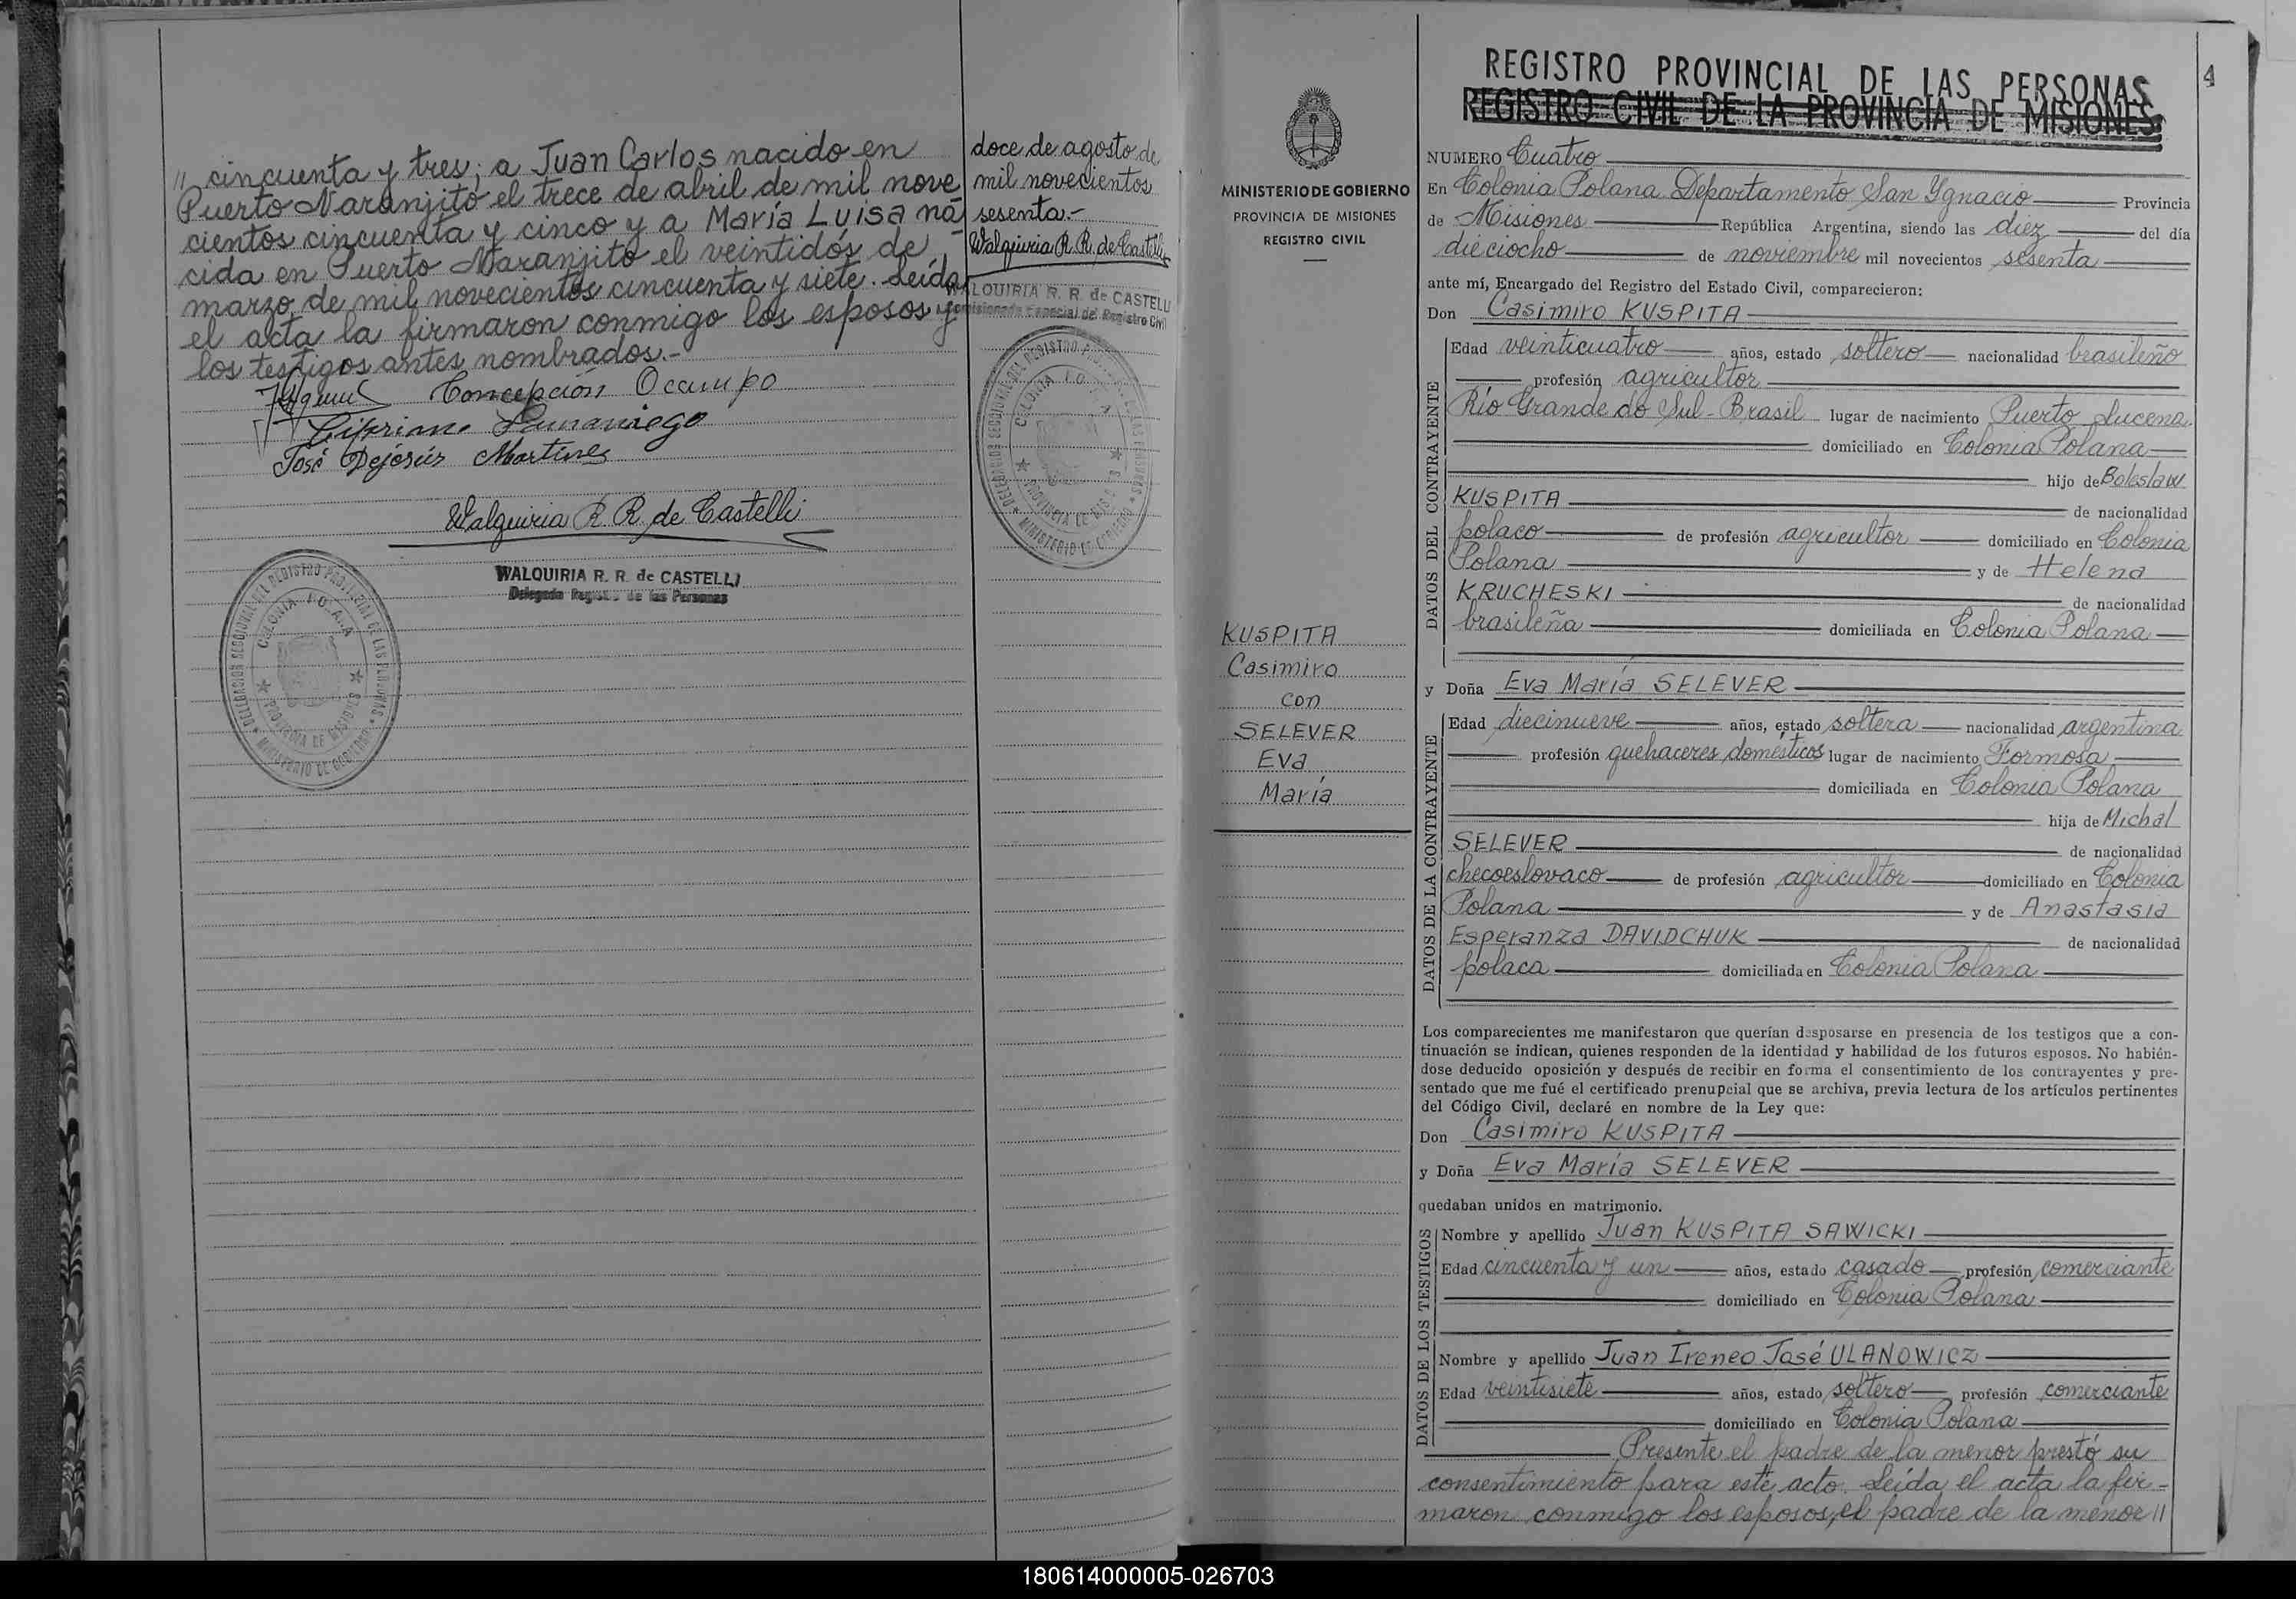 " cincuenta y tres; a Juan Carlos nacido en
Puerto Naranjito el trece de abril de mil nove
cientos cincuenta y cinco y a María Luisa na
cida en Puerto Naranjito el veintidós de
marzo de mil novecientos cincuenta y siete. Leída
el acta la firmaron conmigo los esposos y
los testigos antes nombrados.-
Concepción Ocampo
Cipriano Samaniego
José Dejesús Martines
Walquiria R. R. de Castelli
WALQUIRIA R. R. de CASTELLI
Delegada Registro de las Personas
COLONIA POLANA
PROVINCIA DE MISIONES
MINISTERIO DE GOBIERNO
doce de agosto de
mil novecientos
sesenta.-
Walquiria R. R. de Castelli
WALQUIRIA R. R. de CASTELLI
Comisionada Especial del Registro Civil
MINISTERIO DE GOBIERNO
PROVINCIA DE MISIONES
REGISTRO CIVIL
KUSPITA
Casimiro
con
SELEVER
Eva
María
4
REGISTRO PROVINCIAL DE LAS PERSONAS
REGISTRO CIVIL DE LA PROVINCIA DE MISIONES
NUMERO Cuatro
En Colonia Polana Departamento San Ygnacio Provincia
de Misiones República Argentina, siendo las diez del día
dieciocho de noviembre mil novecientos sesenta
ante mí, Encargado del Registro del Estado Civil, comparecieron:
Don Casimiro KUSPITA
DATOS DEL CONTRAYENTE
Edad veinticuatro años, estado soltero nacionalidad brasileño
profesión agricultor
Río Grande do Sul - Brasil lugar de nacimiento Puerto Lucena
domiciliado en Colonia Polana
hijo de Boleslaw
KUSPITA de nacionalidad
polaco de profesión agricultor domiciliado en Colonia
Polana y de Helena
KRUCHESKI de nacionalidad
brasileña domiciliada en Colonia Polana
y Doña Eva María SELEVER
DATOS DE LA CONTRAYENTE
Edad diecinueve años, estado soltera nacionalidad argentina
profesión quehaceres domésticos lugar de nacimiento Formosa
domiciliada en Colonia Polana
hija de Michal
SELEVER de nacionalidad
checoeslovaco de profesión agricultor domiciliado en Colonia
Polana y de Anastasia
Esperanza DAVIDCHUK de nacionalidad
polaca domiciliada en Colonia Polana
Los comparecientes me manifestaron que querían desposarse en presencia de los testigos que a con-
tinuación se indican, quienes responden de la identidad y habilidad de los futuros esposos. No habién-
dose deducido oposición y después de recibir en forma el consentimiento de los contrayentes y pre-
sentado que me fué el certificado prenupcial que se archiva, previa lectura de los artículos pertinentes
del Código Civil, declaré en nombre de la Ley que:
Don Casimiro KUSPITA
y Doña Eva María SELEVER
quedaban unidos en matrimonio.
DATOS DE LOS TESTIGOS
Nombre y apellido Juan KUSPITA SAWICKI
Edad cincuenta y un años, estado casado profesión comerciante
domiciliado en Colonia Polana
Nombre y apellido Juan Ireneo José ULANOWICZ
Edad veintisiete años, estado soltero profesión comerciante
domiciliado en Colonia Polana
Presente el padre de la menor prestó su
consentimiento para este acto. Leída el acta la fir-
maron conmigo los esposos, el padre de la menor "
180614000005-026703